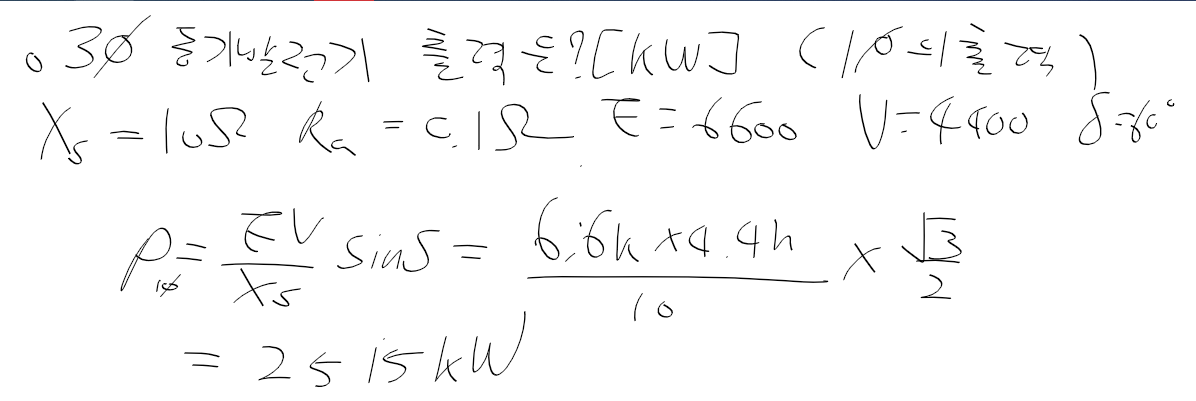 o 3ø 동기발전기 출력은? [kW] (1ø의 출력)
Xs = 10Ω Ra = 0.1Ω E = 6600 V = 4400 δ = 60°
P1ø = EV/Xs sinδ = 6.6k × 4.4k/10 × √3/2
= 2515kW